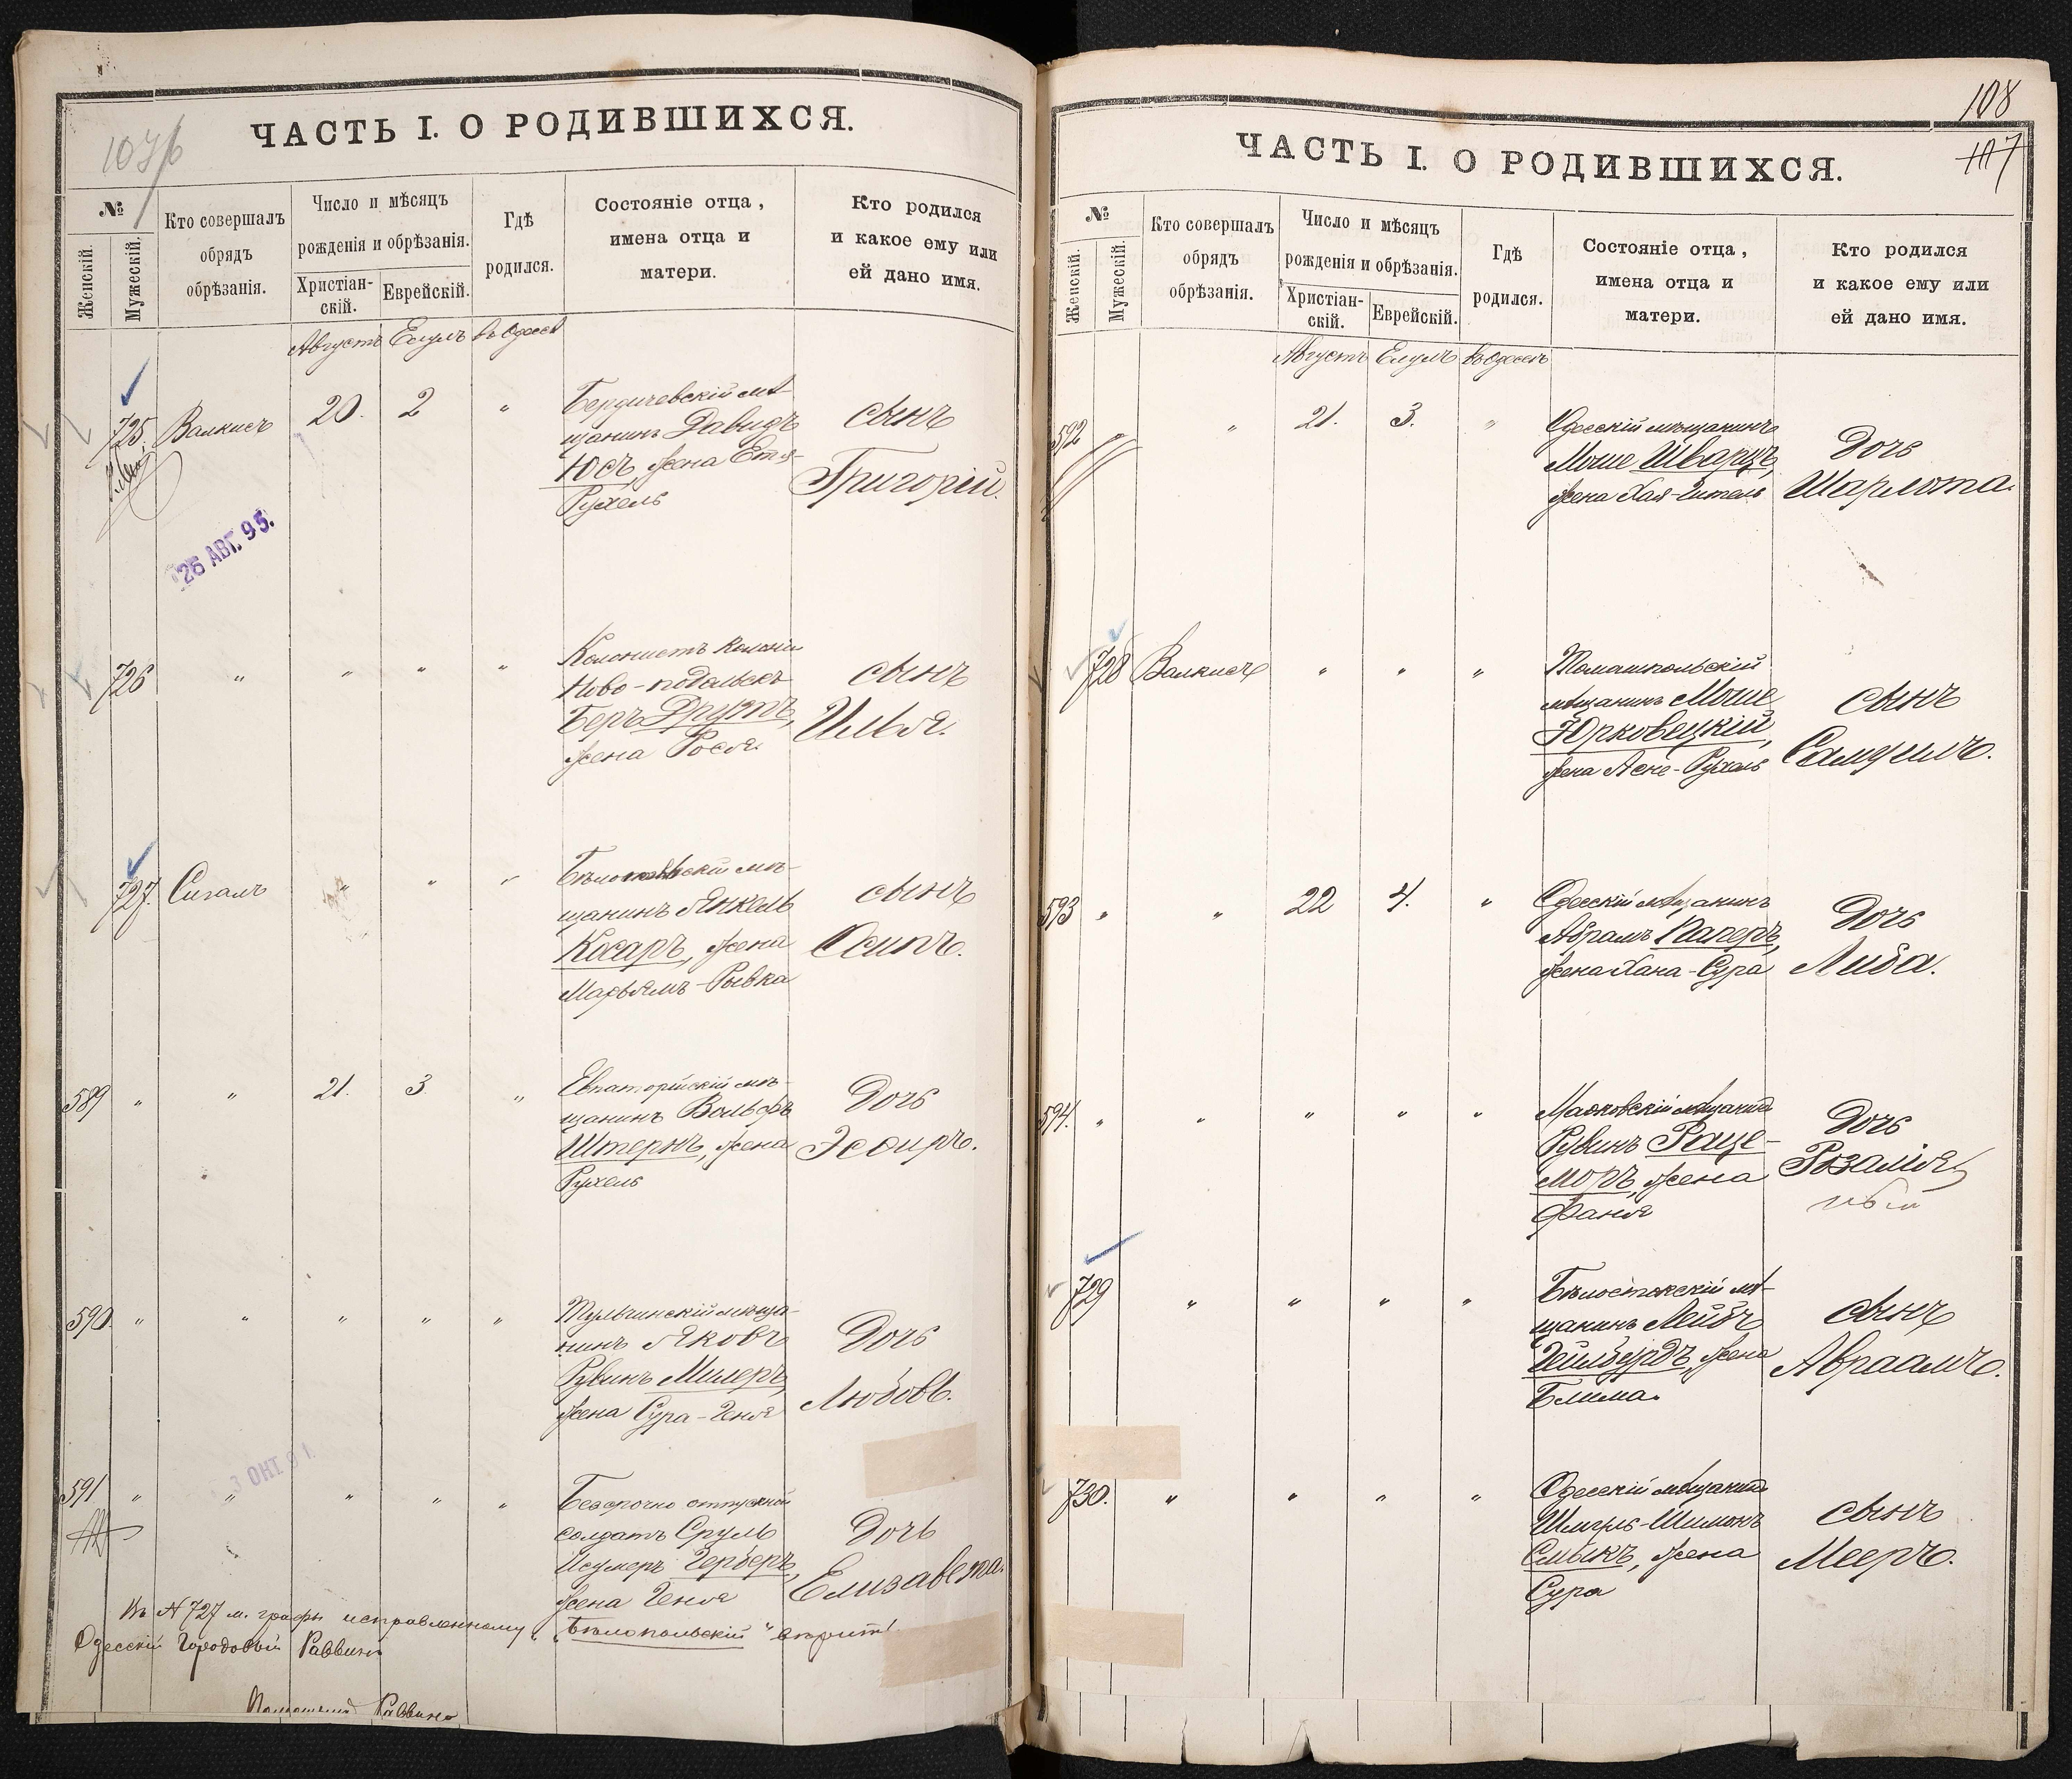 ЧАСТЬ I. О РОДИВШИХСЯ.
№
Женскій.
Мужескій.
Кто совершалъ
обрядъ
обрѣзанія.
Число и мѣсяцъ
рожденія и обрѣзанія.
Христіан-
скій.
Еврейскій.
Гдѣ
родился.
Состояніе отца,
имена отца и
матери.
Кто родился
и какое ему или
ей дано имя.
Августъ Елулъ въ Одессѣ
725. Валкисъ 20. 2 "
Бердичевскій мѣ-
щанинъ Давидъ
Юсъ, жена Етя-
Рухель
сынъ
Григорій.
25 АВГ. 95.
726 " " " "
Колонистъ Колоніи
Ново-подольскъ
Беръ Друтъ,
жена Рося.
сынъ
Илья.
727. Сигалъ " " "
Бѣлопольскій мѣ-
щанинъ Янкель
Косаръ, жена
Марьямъ-Рывка
сынъ
Осипъ.
589 " " 21. 3 "
Евпаторійскій мѣ-
щанинъ Вольфъ
Штернъ, жена
Рухель
Дочь
Эсѳирь.
590 " " " " "
Тульчинскій мѣща-
нинъ Яковъ
Рувинъ Милеръ,
жена Сура-Геня
Дочь
Любовь.
3 ОКТ 91.
591 " " " " "
Безсрочно отпускной
солдатъ Сруль
Герберъ,
жена Геня
Дочь
Елизавета.
Въ № 727 м. графы исправленному „Бѣлопольскій“ вѣрить!
Одесскій Городовой Раввинъ
Раввина
108
107
ЧАСТЬ I. О РОДИВШИХСЯ.
№
Женскій.
Мужескій.
Кто совершалъ
обрядъ
обрѣзанія.
Число и мѣсяцъ
рожденія и обрѣзанія.
Христіан-
скій.
Еврейскій.
Гдѣ
родился.
Состояніе отца,
имена отца и
матери.
Кто родился
и какое ему или
ей дано имя.
Августъ Елулъ въ Одессѣ
592 " " 21. 3. "
Одесскій мѣщанинъ
Моше Шварцъ,
жена Хая-Гитель
Дочь
Шарлота.
728 Валкисъ " " "
Томашпольскій
мѣщанинъ Моше
Юрковецкій,
жена Асне-Рухель
сынъ
Самуилъ.
593 " " 22 4. "
Одесскій мѣщанинъ
Абрамъ Паперъ,
жена Хана-Сура
Дочь
Либа.
594. " " " " "
Маяковскій мѣщанинъ
Рувинъ Раце-
моръ, жена
Фаня
Дочь
Розалія
729 " " " "
Бѣлостокскій мѣ-
щанинъ Лейбъ
Гейлбурдъ, жена
Блима.
сынъ
Авраамъ.
730. " " " "
Одесскій мѣщанинъ
Шмуль-Шимонъ
Смыкъ, жена
Сура
сынъ
Мееръ.